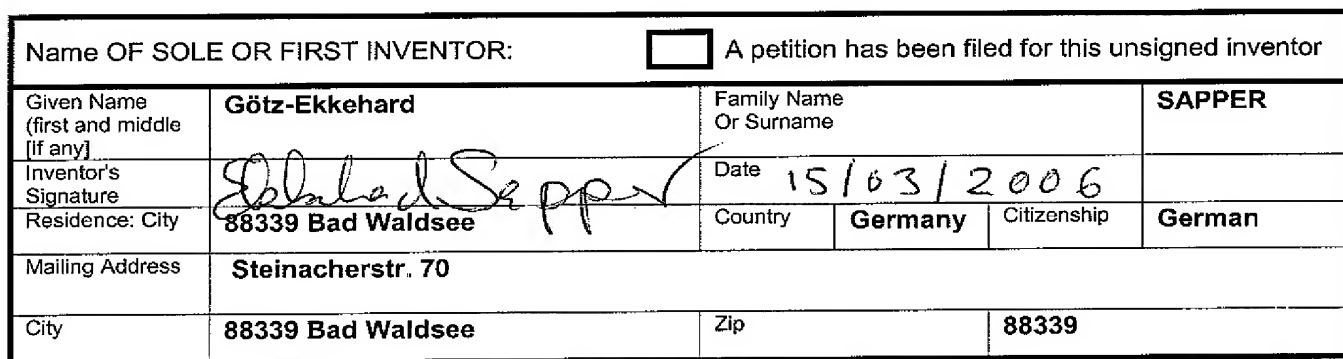 Name OF SOLE OR FIRST INVENTOR: A petition has been filed for this unsigned inventor
Given Name (first and middle [if any] Götz-Ekkehard Family Name Or Surname SAPPER
Inventor's Signature Ekkehard Sapper Date 15/03/2006
Residence: City 88339 Bad Waldsee Country Germany Citizenship German
Mailing Address Steinacherstr. 70
City 88339 Bad Waldsee Zip 88339